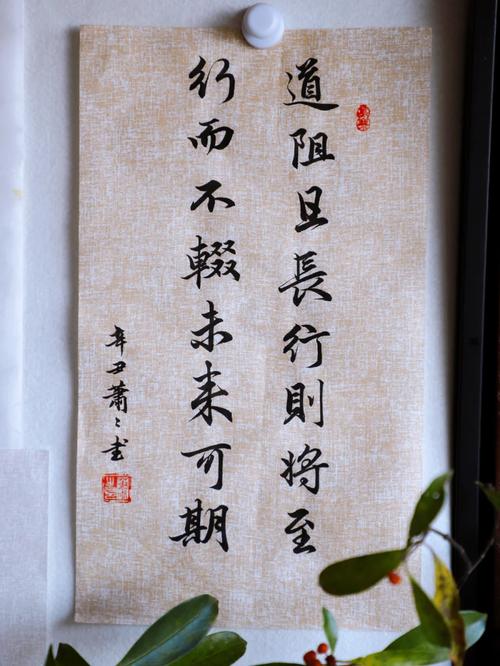 道阻且長行則將至
行而不輟未来可期
辛丑蕭〻书